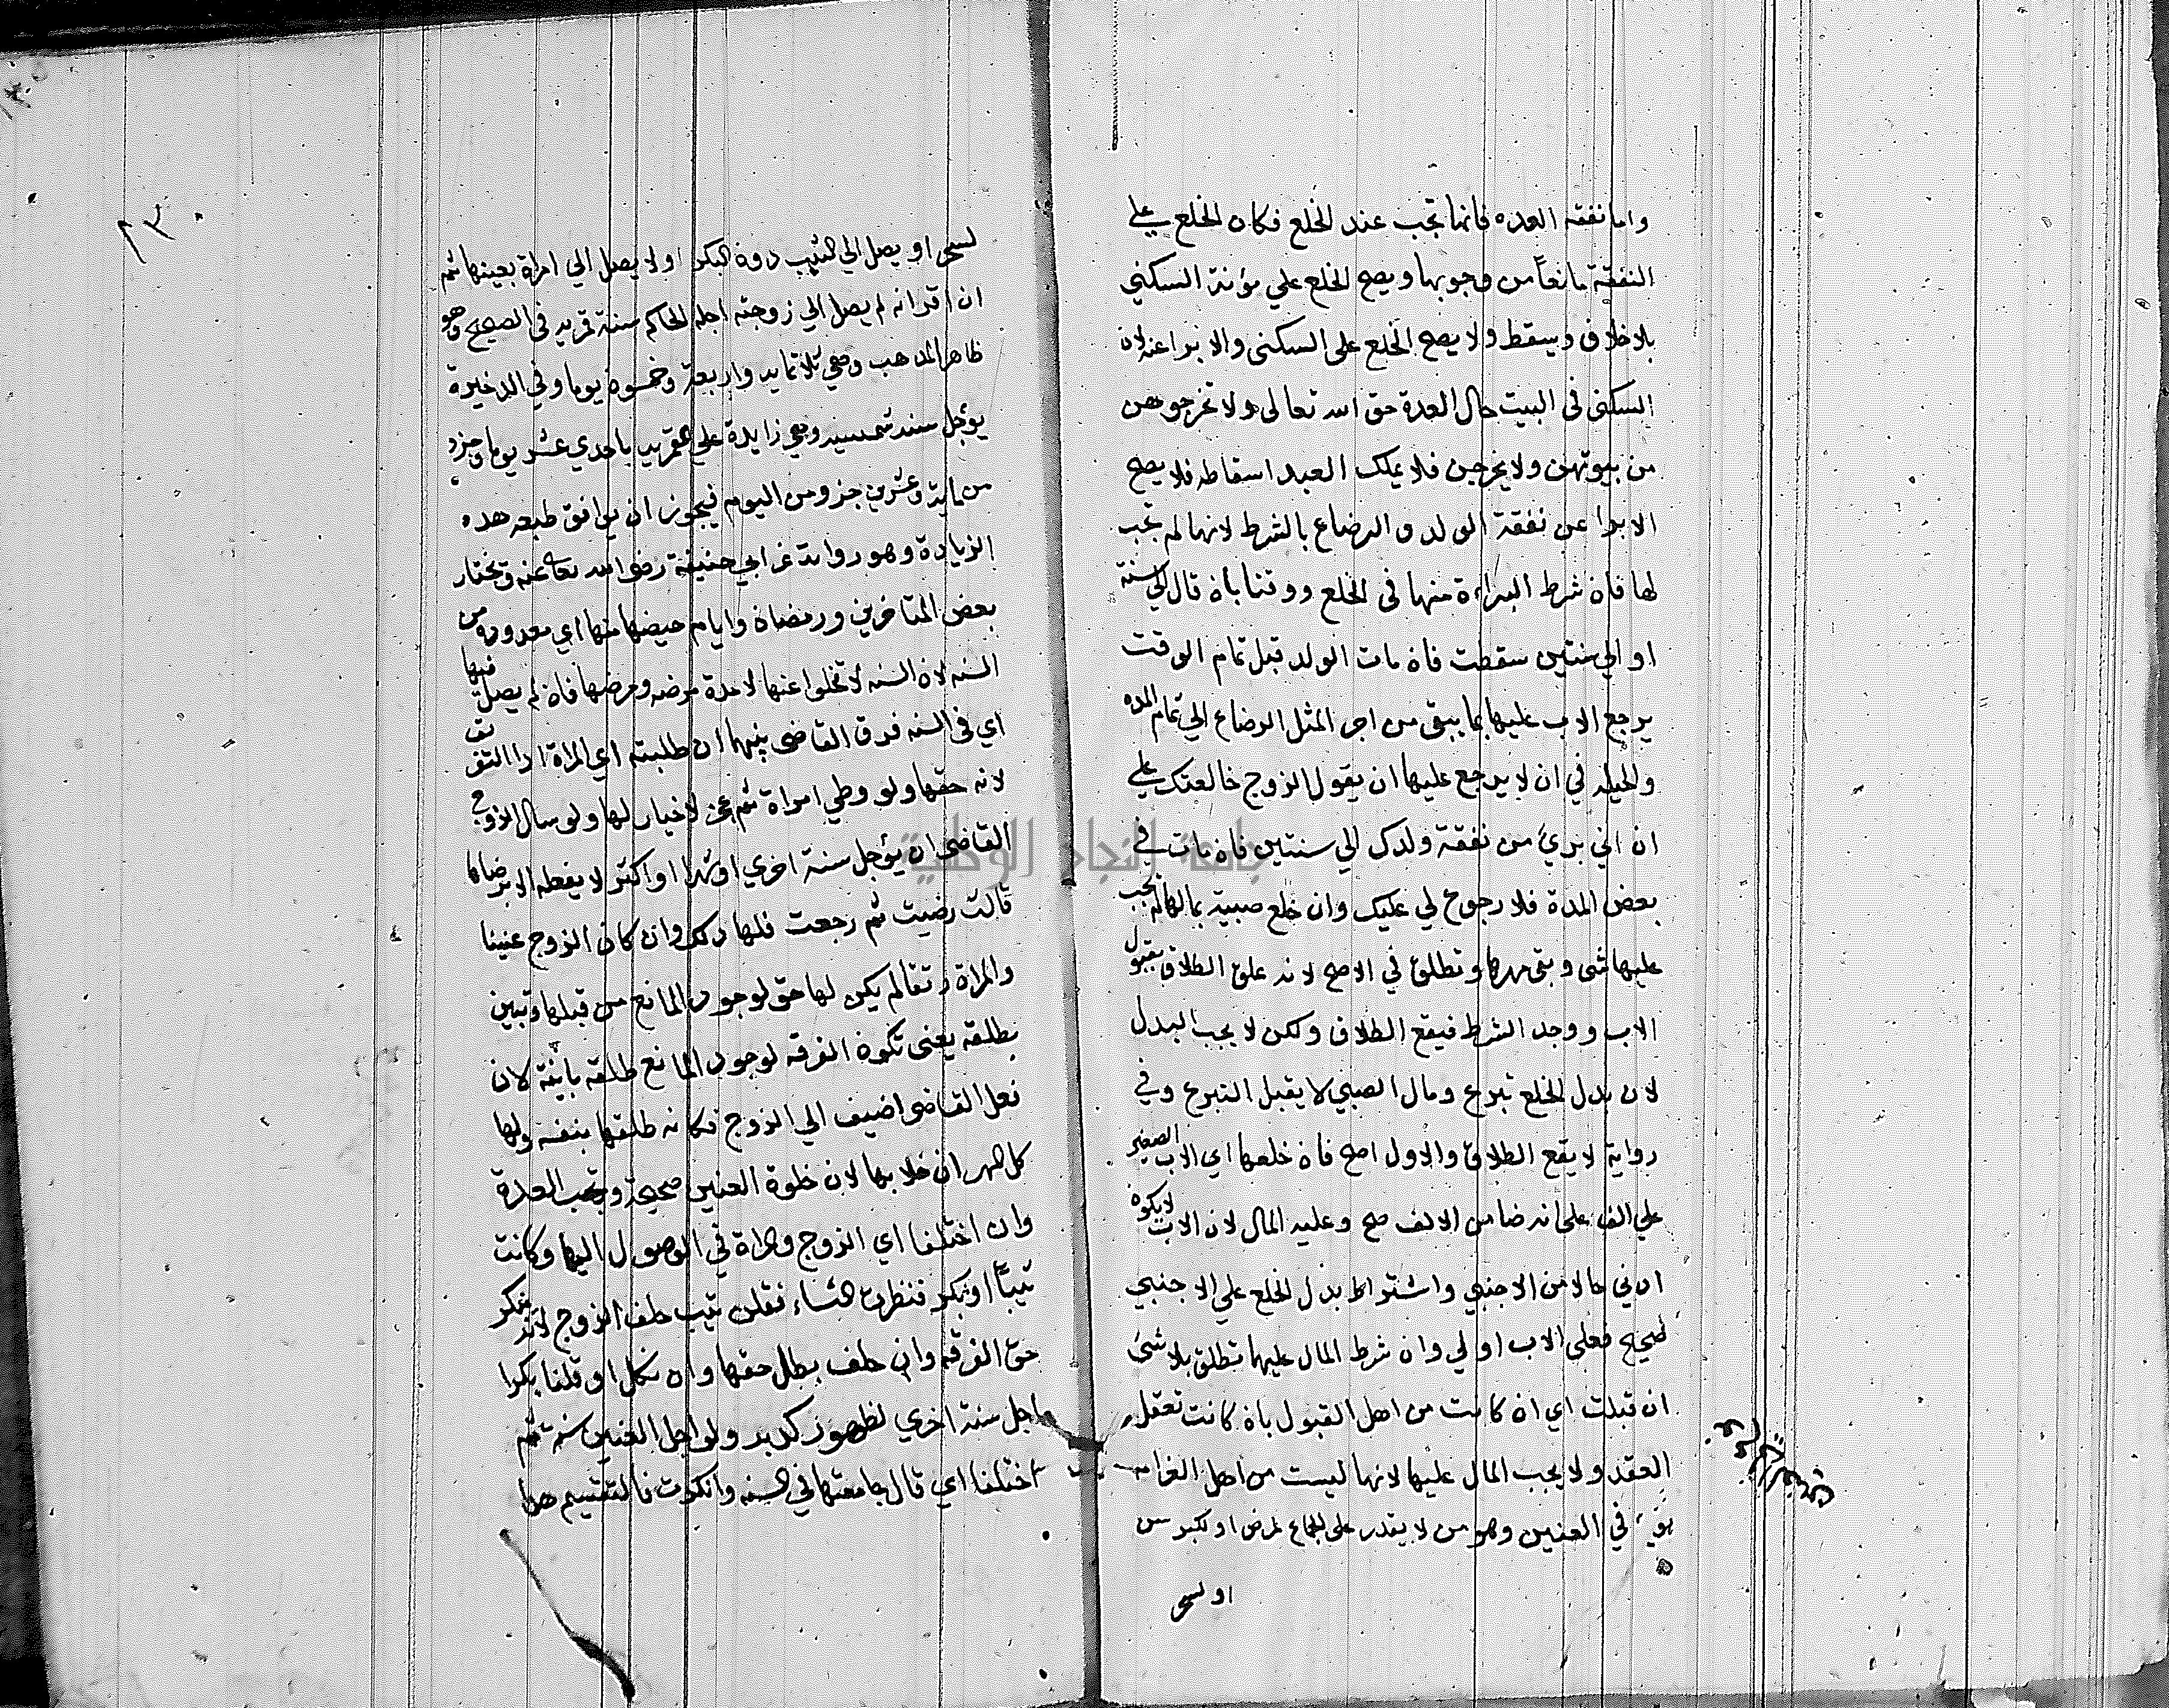 واما نفقه العده فانها تجب عند الخلع فكان الخلع علي
النفقة مانعا من وجوبها ويصح الخلع علي مؤنة السكني
بلا خلاف ويسقط ولا يصح الخلع علي السكني والابرا عنه لان
السكني في البيت حال العدة حق الله تعالى ولا تخرجوهن
من بيوتهن ولا يخرجن فلا يملك العبد اسقاطه فلا يصح
الابرا عن نفقة الولد والرضاع بالشرط لانها لم تجب
لها فان شرط البراءة منها في الخلع ووقتا بان قال الي سنة
او الي سنتين سقطت فان مات الولد قبل تمام الوقت
يرجع الاب عليها بما يبقى من اجر المثل الرضاع الي تمام المده
والحيله في ان لا يرجع عليها ان يقول الزوج خالعتك علي
ان اني بريء من نفقة ولدك الي سنتين فان مات في
بعض المدة فلا رجوع لي عليك وان خلع صبية بمالها لم يجب
عليها شي وبقي مهرها وتطلق في الاصح لانه علق الطلاق بقبول
الاب ووجد الشرط فيقع الطلاق ولكن لا يجب البدل
لان بدل الخلع تبرع ومال الصبي لا يقبل التبرع وفي
رواية لا يقع الطلاق والاول اصح فان خلعها اي الاب الصغير
علي الف علي انه ضامن الالف صح وعليه المال لان الاب لا يكون
ادني حالا من الاجنبي واشتراط بدل الخلع علي الاجنبي
صحيح فعلي الاب اولي وان شرط المال عليها تطلق بلا شئ
ان قبلت اي ان كانت من اهل القبول بان كانت تعقل
العقد ولا يجب المال عليها لانها ليست من اهل الغرامه
في العنين وهو من لا يقدر علي الجماع لمرض او كبر سن
او لسحر
٢٣
لسحر او يصل الي الثيب دون البكر او لا يصل الي امراة بعينها ثم
ان اقر انه لم يصل الي زوجته اجله الحاكم سنة قمريه في الصحيح وهو
ظاهر المذهب وهي ثلاثمايه واربعة وخمسون يوما وفي الدخيرة
يؤجل سنه شمسيه وهي زايدة علي القمريه باحدي عشر يوما وجزو
من ماية وعشرين جزو من اليوم فيجوز ان يوافق طبعه هده
الزيادة وهو روايه عن ابي حنيفة رضي الله تعالى عنه ومختار
بعض المتاخرين ورمضان وايام حيضها منها اي معدوده من
السنه لان السنه لا تخلوا عنها لا مدة مرضه ومرضها فان لم يصل فيها
اي في السنه فرق القاضي بينهما ان طلبته اي المراة ادا التفريق
لانه حقها ولو وطي امراة ثم عجز لا خيار لها ولو سال الزوج
القاضي ان يؤجل سنة اخري او شهرا او اكثر لا يفعله الا برضاها
قالت رضيت ثم رجعت فلها ذلك وان كان الزوج عنينا
والمراة رتقا لم يكن لها حق لوجود المانع من قبلها وتبين
بطلقه يعني تكون الفرقه لوجود المانع طلقه باينة لان
فعل القاضي اضيف الي الزوج فكانه طلقها بنفسه ولها
كل المهر ان خلا بها لان خلوة العنين صحيحة وتجب العدة
وان اختلفا اي الزوج والمراة في الوصول اليها وكانت
ثيبا او بكر فنظرن النساء فقلن ثيب حلف الزوج لانه ينكر
حق الفرقه وان حلف بطل حقها وان نكل او قلنا بكرا
اجل سنة اخري لظهور كدبه ولو اجل العنين سنه ثم
اختلفا اي قال جامعتها في السنه وانكرت فالتقسيم هدا